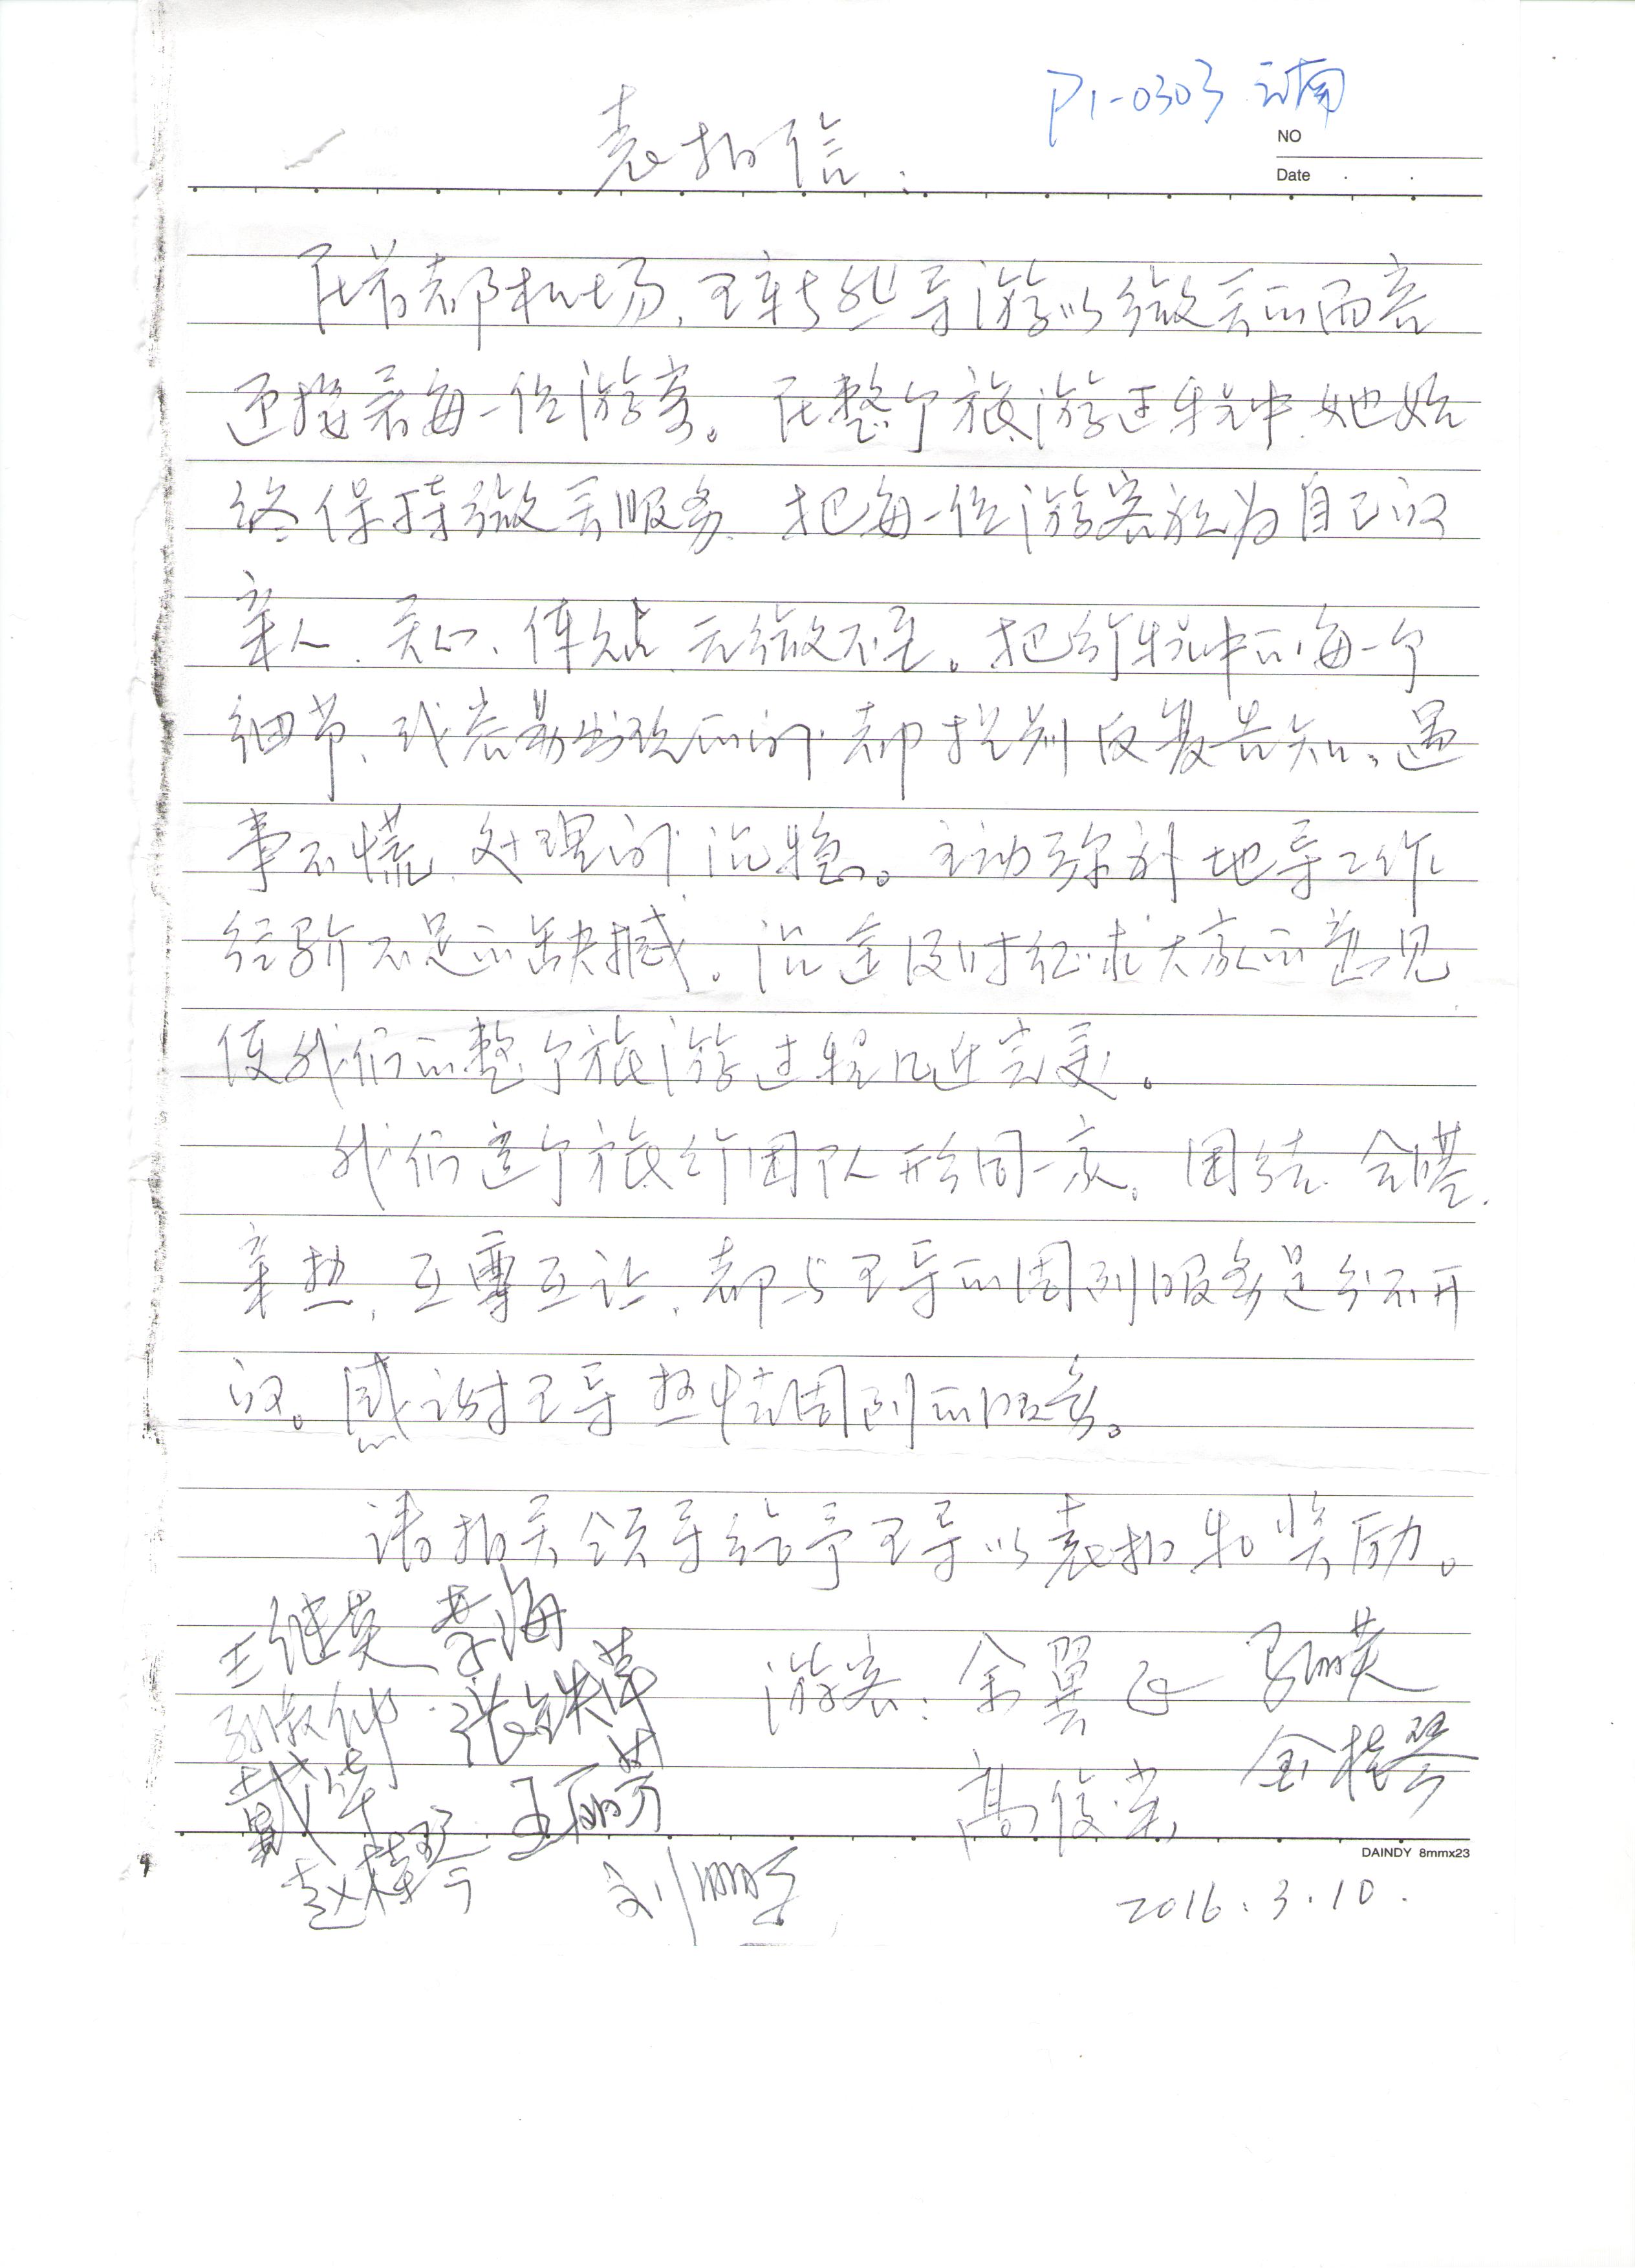 P1-0303 云南
表扬信.
NO
Date
在首都机场,王 导游以微笑的面容
迎接着每一位游客。在整个旅游过程中,她始
终保持微笑服务,把每一位游客视为自己的
亲人,关心、体贴,无微不至。把行程中的每一个
细节、或容易出现的问 都提前反复告知。遇
事不慌,处理问 沉稳。主动弥补地导工作
经验不足的缺憾。沿途及时征求大家的意见
使我们的整个旅游过程几近完美。
我们这个旅行团队形同一家。团结、合搭、
亲热,互尊互让,都与王导的周到服务是分不开
的。感谢王导热情周到的服务。
请相关领导给予王导以表扬和奖励。
王继英 李海
游客:余翼 马丽英
孙淑仰 张铁萍
戴华 王丽芳
高俊荣 金桂琴
赵桂琴 刘
DAINDY 8mmx23
2016.3.10.